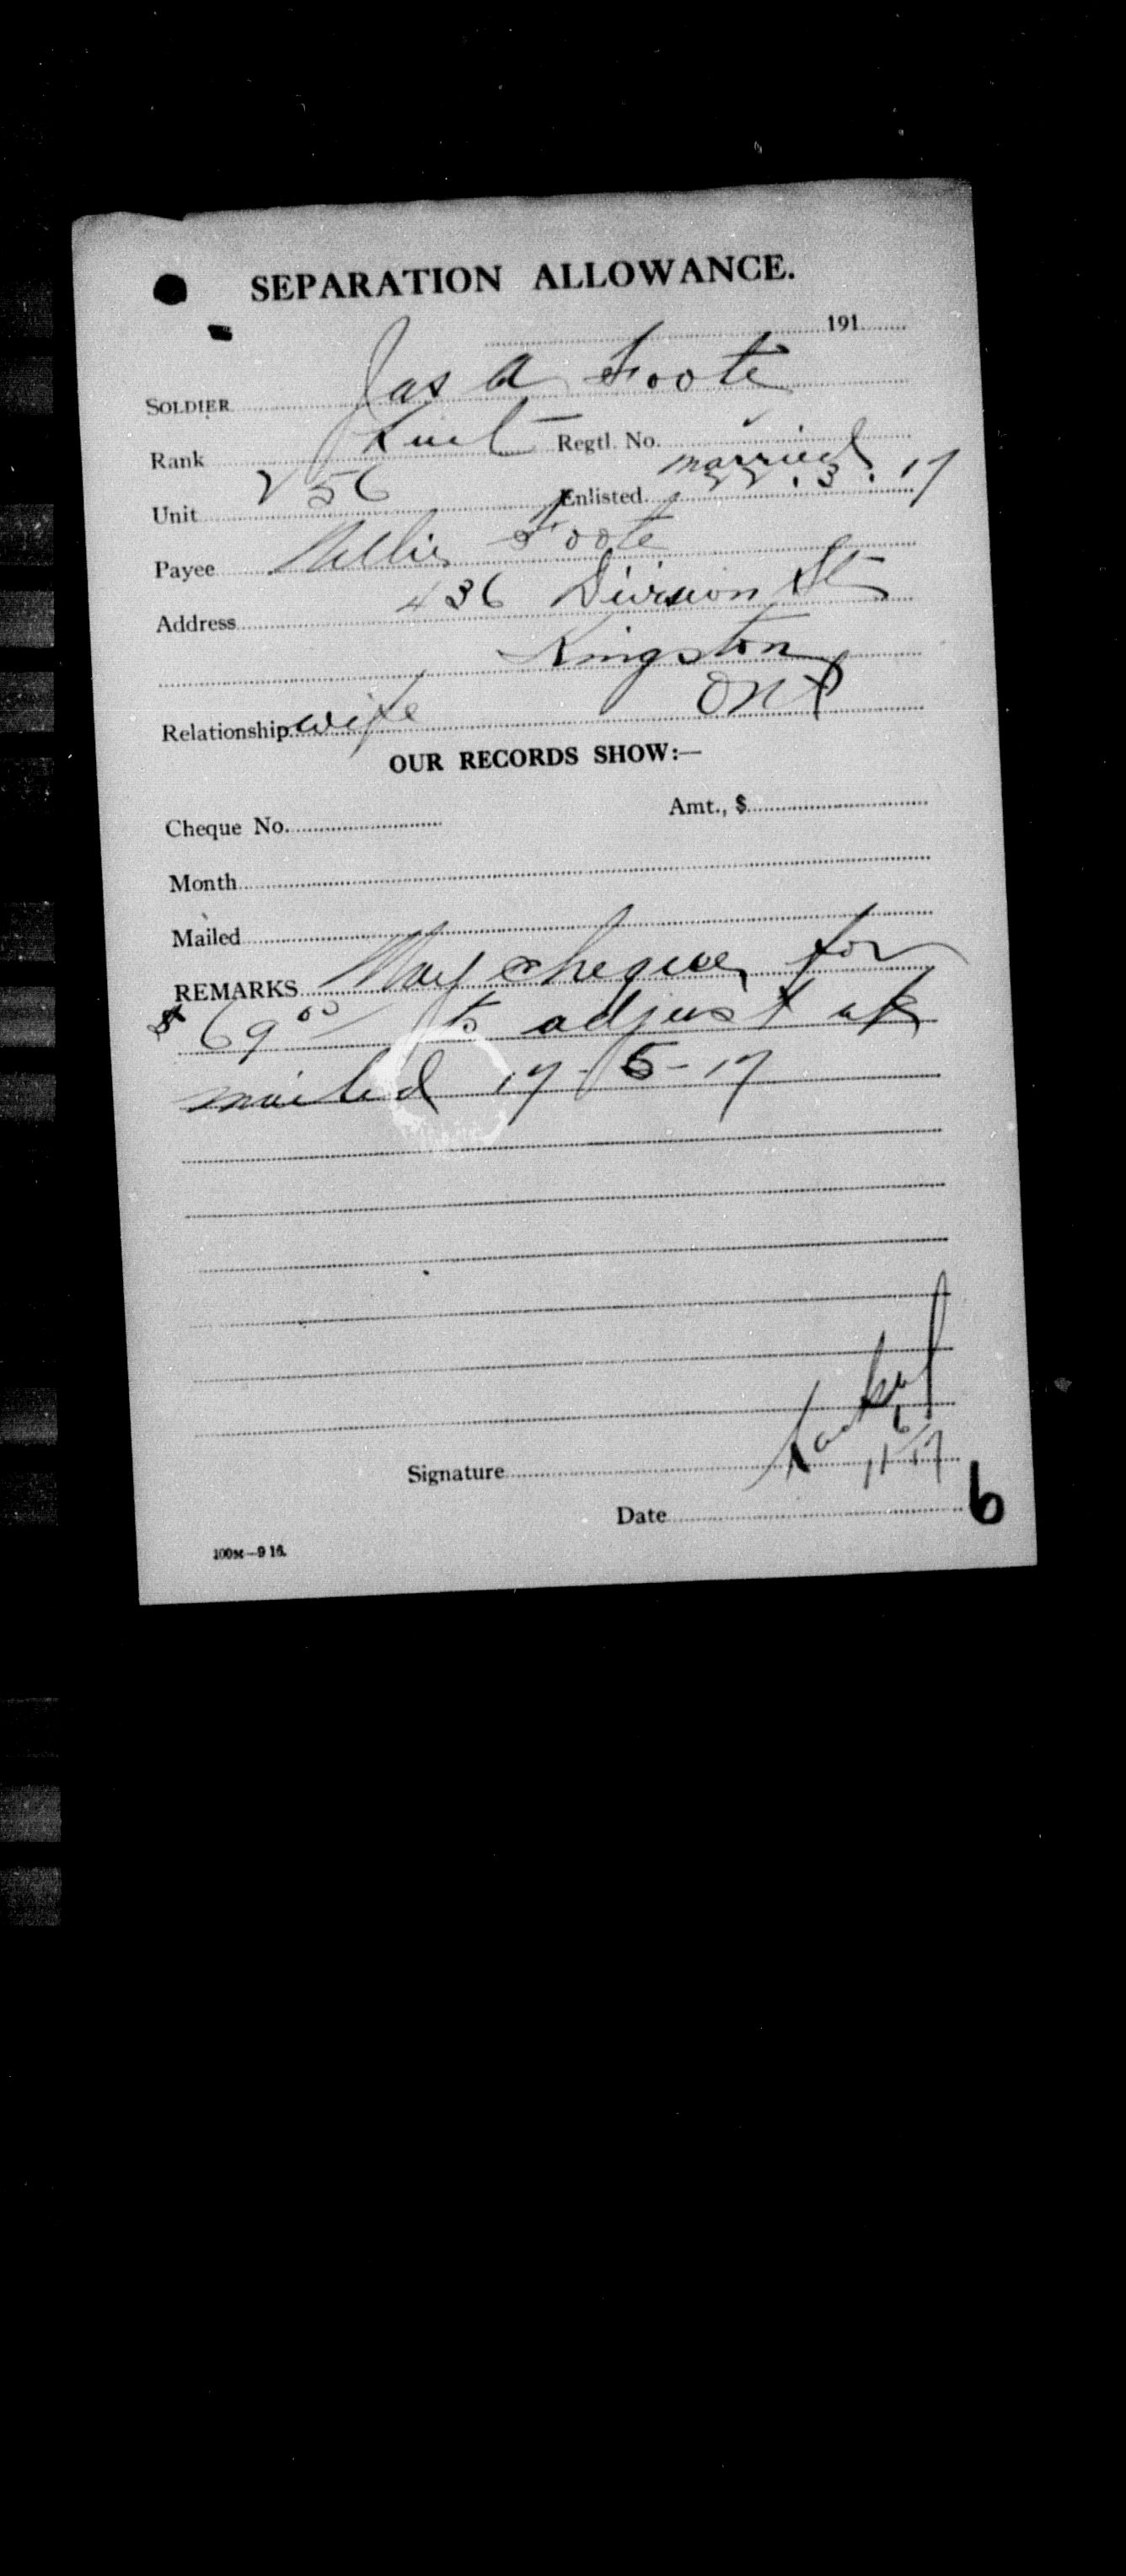 SEPARATION ALLOWANCE.
191
SOLDIER Jas A Foote
Rank Lieut Regtl. No.
Unit 256 Enlisted married 22.3.17
Payee Nellie Foote
Address 436 Division St
Kingston
Ont
Relationship wife
OUR RECORDS SHOW:—
Cheque No. Amt., $
Month
Mailed
REMARKS May cheque for
$69.00 to adjust a/c
mailed 17-5-17
Signature
11/6/17
Date
6
100M—9 16.